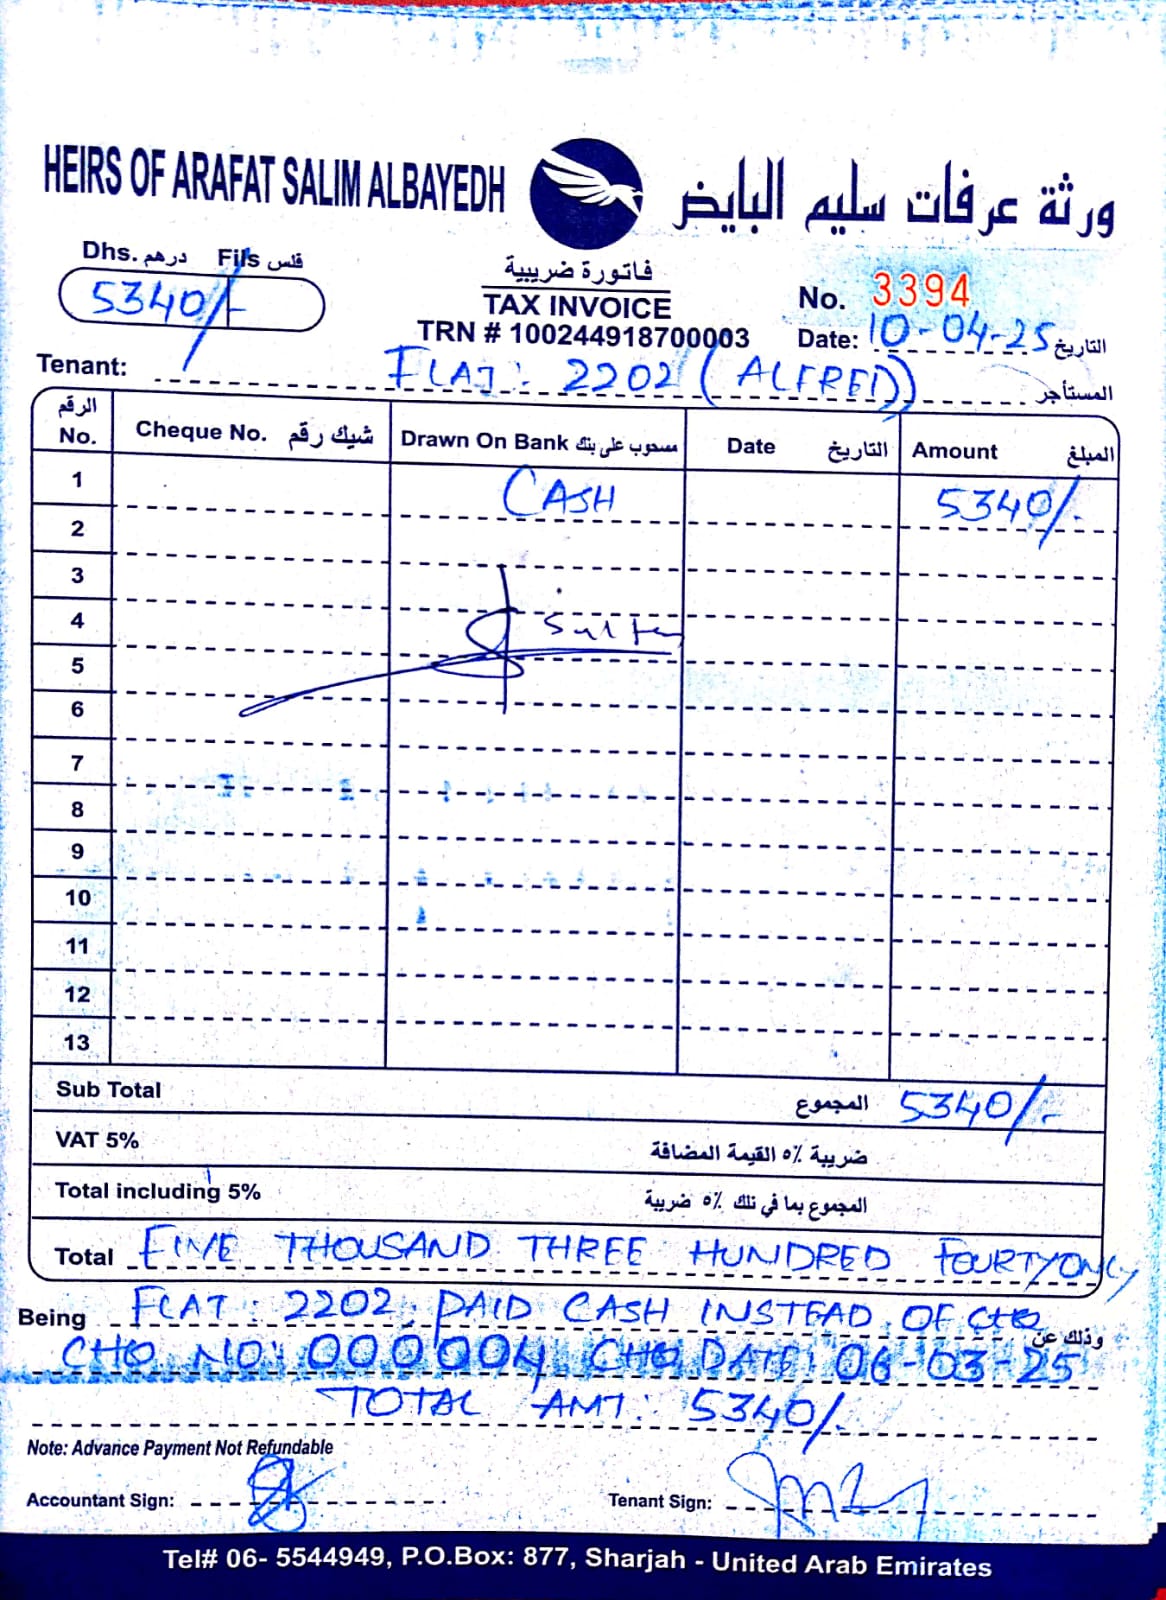 HEIRS OF ARAFAT SALIM ALBAYEDH
ورثة عرفات سليم البايض
Dhs. درهم Fils فلس
5340/-
فاتورة ضريبية
TAX INVOICE
TRN # 100244918700003
No. 3394
Date: 10-04-25 التاريخ
Tenant: FLAT: 2202 (ALFRED) المستأجر
الرقم No. Cheque No. شيك رقم Drawn On Bank مسحوب على بنك Date التاريخ Amount المبلغ
1 CASH 5340/-
2
3
4
5
6
7
8
9
10
11
12
13
Sub Total المجموع 5340/-
VAT 5% ضريبة ٥٪ القيمة المضافة
Total including 5% المجموع بما في تلك ٥٪ ضريبة
Total FIVE THOUSAND THREE HUNDRED FOURTY ONLY
Being FLAT: 2202, PAID CASH INSTEAD OF CHQ وذلك عن
CHQ NO: 000004, CHQ DATE: 06-03-25
TOTAL AMT: 5340/-
Note: Advance Payment Not Refundable
Accountant Sign: Tenant Sign:
Tel# 06- 5544949, P.O.Box: 877, Sharjah - United Arab Emirates